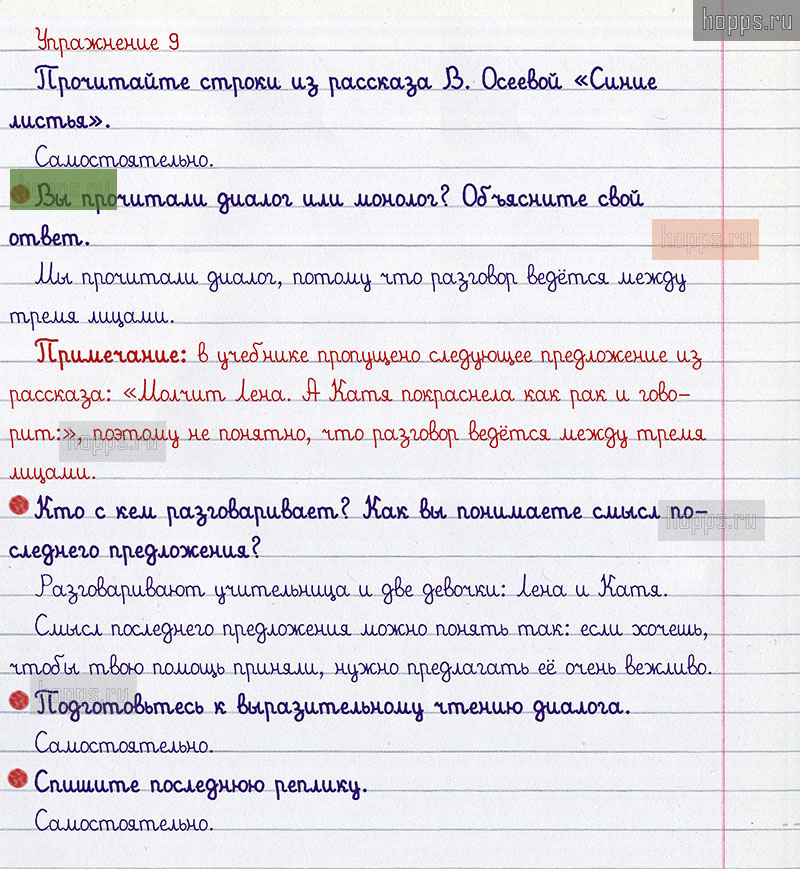 hopps.ru
Упражнение 9
Прочитайте строки из рассказа В. Осеевой «Синие
листья».
Самостоятельно.
hopps.ru
Вы прочитали диалог или монолог? Объясните свой
ответ.
hopps.ru
Мы прочитали диалог, потому что разговор ведётся между
тремя лицами.
Примечание: в учебнике пропущено следующее предложение из
рассказа: «Молчит Лена. А Катя покраснела как рак и гово-
рит:», поэтому не понятно, что разговор ведётся между тремя
hopps.ru
лицами.
Кто с кем разговаривает? Как вы понимаете смысл по-
hopps.ru
следнего предложения?
Разговаривают учительница и две девочки: Лена и Катя.
Смысл последнего предложения можно понять так: если хочешь,
чтобы твою помощь приняли, нужно предлагать её очень вежливо.
hopps.ru
Подготовьтесь к выразительному чтению диалога.
Самостоятельно.
Спишите последнюю реплику.
Самостоятельно.